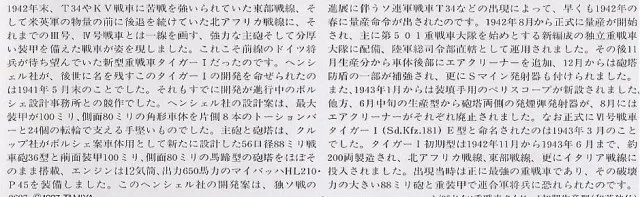 1942年末、T34やKV戦車に苦戦を強いられていた東部戦線、そ
して米英軍の物量の前に後退を続けていた北アフリカ戦線に、そ
れまでのIII号、IV号戦車とは一線を画す、強力な主砲そして分厚
い装甲を備えた戦車が姿を現しました。これこそ前線のドイツ将
兵が待ち望んでいた新型重戦車タイガーIだったのです。ヘンシ
ェル社が、後世に名を残すこのタイガーIの開発を命ぜられたの
は1941年5月末のことでした。それもすでに開発が進行中のポル
シェ設計事務所との競作でした。ヘンシェル社の設計案は、最大
装甲が100ミリ、側面80ミリの角形車体を片側8本のトーションバ
ーと24個の転輪で支える手堅いものでした。主砲と砲塔は、クル
ップ社がポルシェ案車体用として新たに設計した56口径88ミリ戦
車砲36型と前面装甲100ミリ、側面80ミリの馬蹄型の砲塔をほぼそ
のまま搭載、エンジンは12気筒、出力650馬力のマイバッハHL210・
P45を装備しました。このヘンシェル社の開発案は、独ソ戦の
進展に伴うソ連軍戦車T34の出現などによって、早くも1942年の
春に量産命令が出されたのです。1942年8月から正式に量産が開始
され、主に第501重戦車大隊を始めとする新編成の独立重戦車
大隊に配備、陸軍総司令部直轄として運用されました。その後11
月生産分から車体後部にエアクリーナーを追加、12月からは砲塔
防盾の一部が補強され、更にSマイン発射器も付けられました。
また、1943年1月からは装填手用のペリスコープが新設されました。
他方、6月中旬の生産型から砲塔両側の発煙弾発射器が、8月には
エアクリーナーがそれぞれ廃止されました。なお正式にVI号戦車
タイガーI(Sd.Kfz.181)E型と命名されたのは1943年3月のこと
でした。タイガーI初期型は1942年11月から1943年6月まで、約
200両製造され、北アフリカ戦線、東部戦線、更にイタリア戦線に
投入されました。出現当時は正に最強の重戦車であり、その破壊
力の大きい88ミリ砲と重装甲で連合軍将兵に恐れられたのです。
©1997 TAMIYA